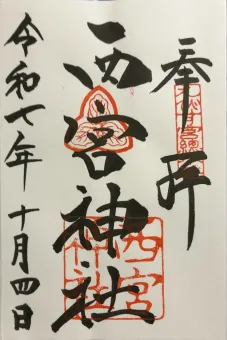 奉拝
西宮神社
西宮神社
令和七年十月四日